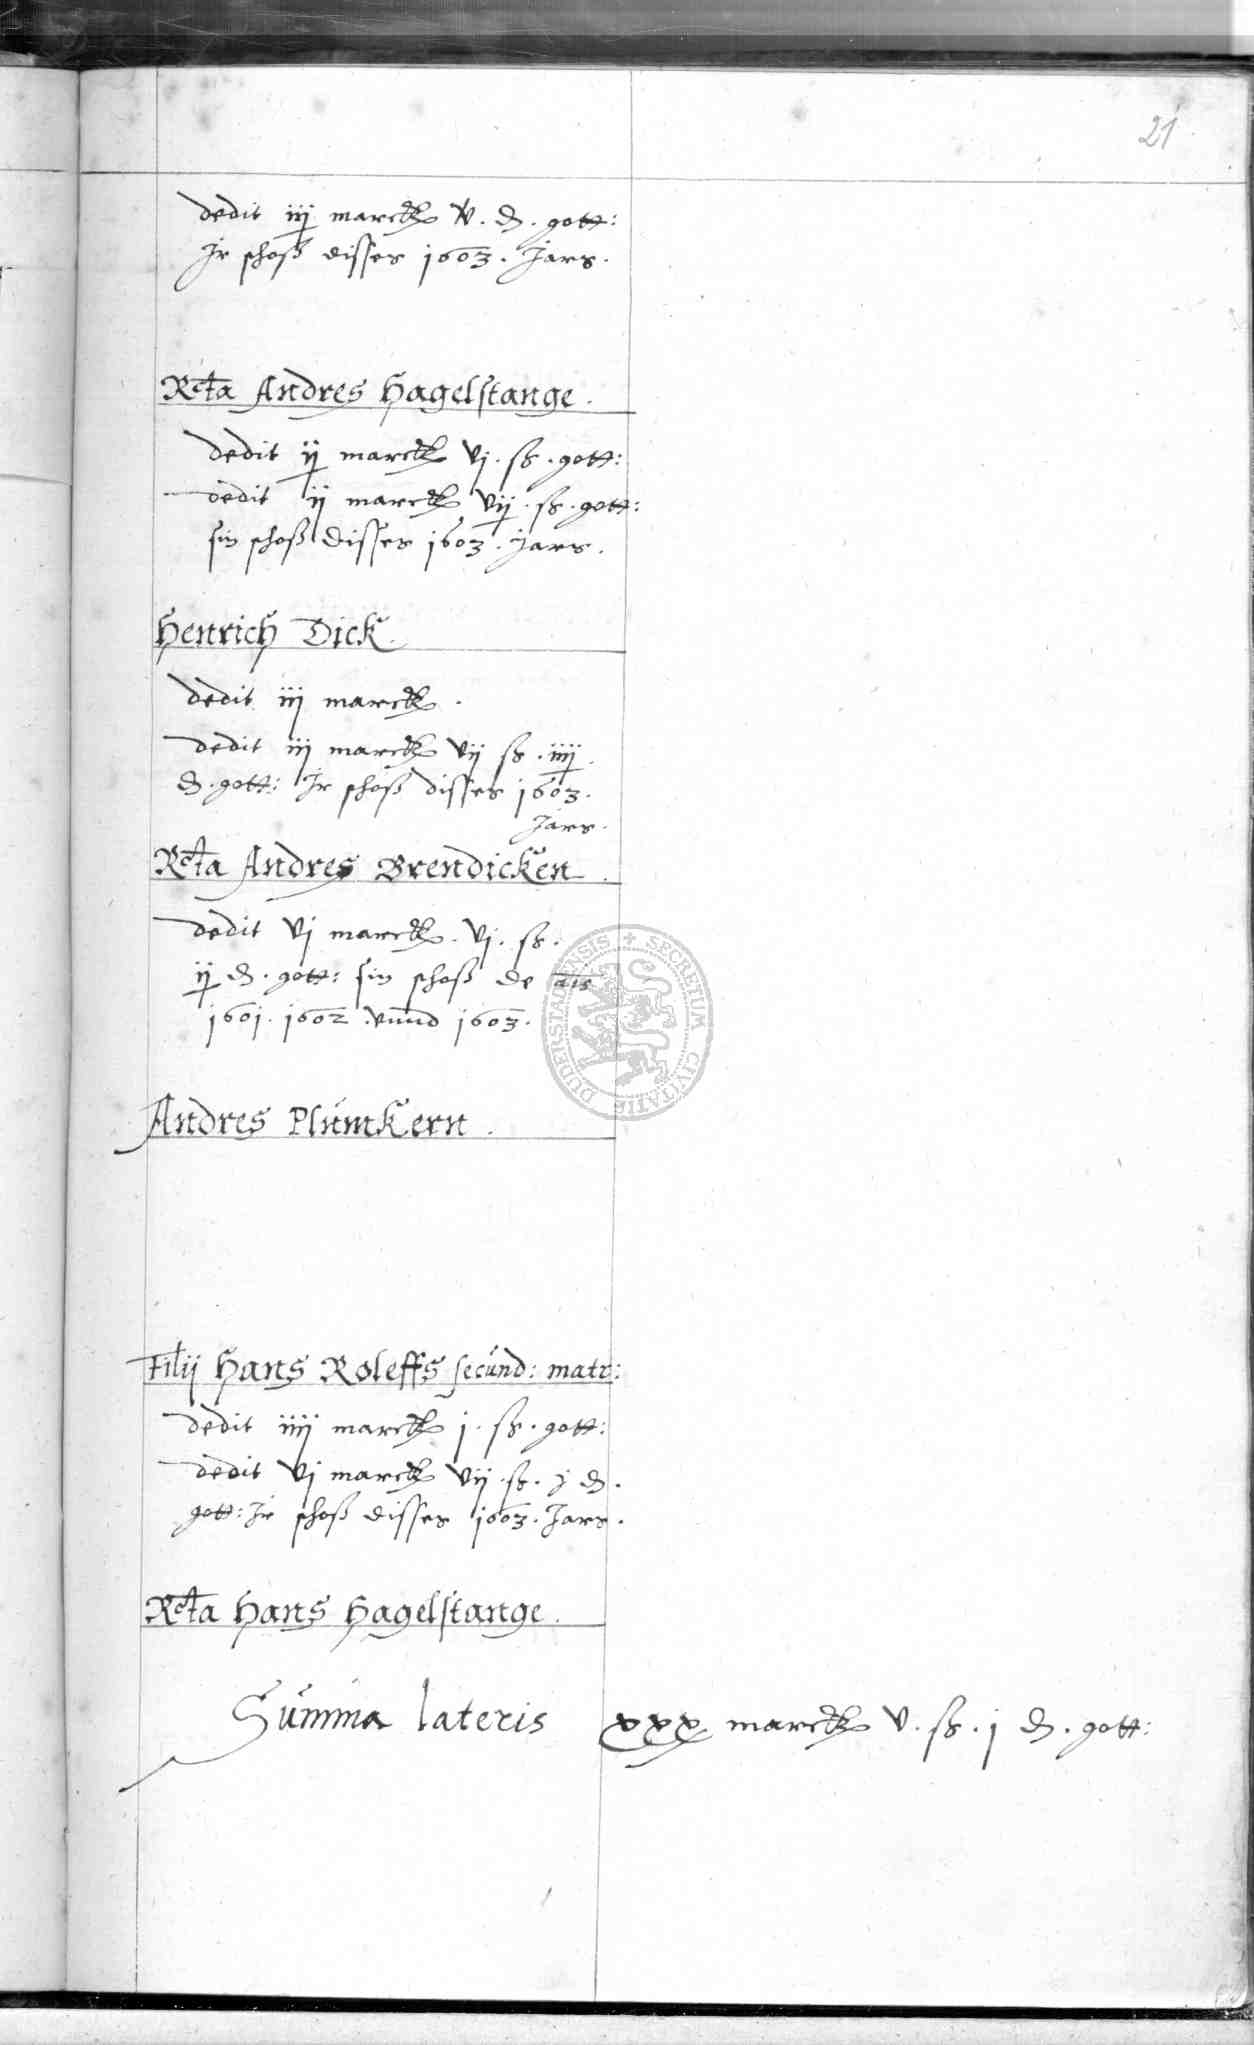 21
dedit iij marck v. d. gott:
Jr schoß disses 1603. Jars.
Rcta Andres Hagelstange.
dedit ij marck vj. ß. gott:
dedit ij marck vij. ß. gott:
sin schoß disses 1603. Jars.
Henrich Dick.
dedit iij marck.
dedit iij marck vij ß. iiij.
d. gott: Jr schoß disses 1603.
Jars.
Rcta Andres Brendicken.
dedit vj marck. vj. ß.
ij d. gott: sin schoß de ais
1601. 1602. vnnd 1603.
DUDERSTADENSIS + SECRETUM CIVITATIS
Andres Plumkern.
Filij Hans Roleffs secund: matr:
dedit iiij marck j. ß. gott:
dedit vj marck vij. ß. j d.
gott: Jr schoß disses 1603. Jars.
Rcta Hans Hagelstange.
Summa lateris xxx marck v. ß. j d. gott: